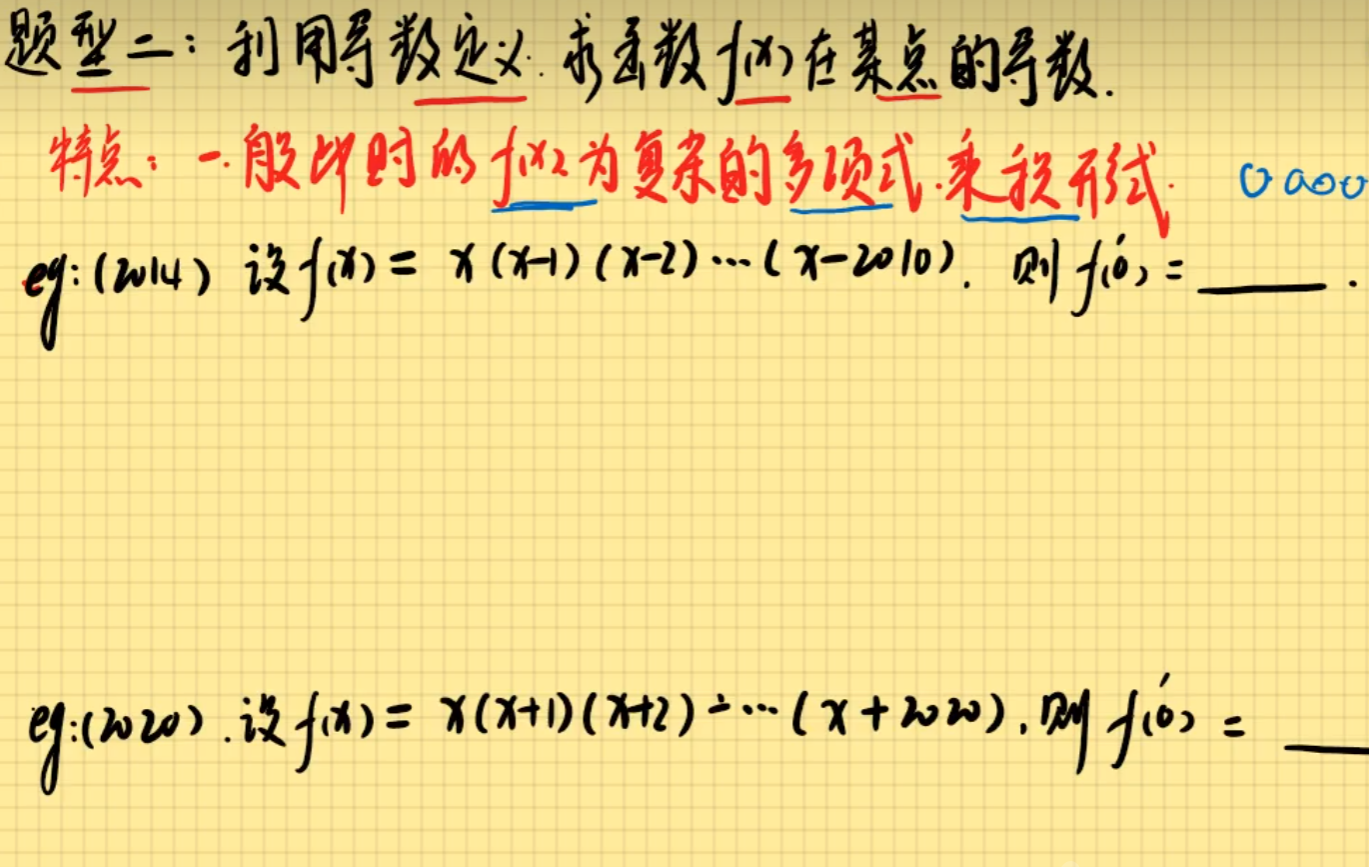 题型二：利用导数定义.求函数f(x)在某点的导数.
特点：一般此时的f(x)为复杂的多项式.乘积形式.
eg:(2014) 设f(x)= x(x-1)(x-2)…(x-2010). 则f'(0)=______.
eg:(2020).设f(x)= x(x+1)(x+2)…(x+2020).则f'(0)= ___